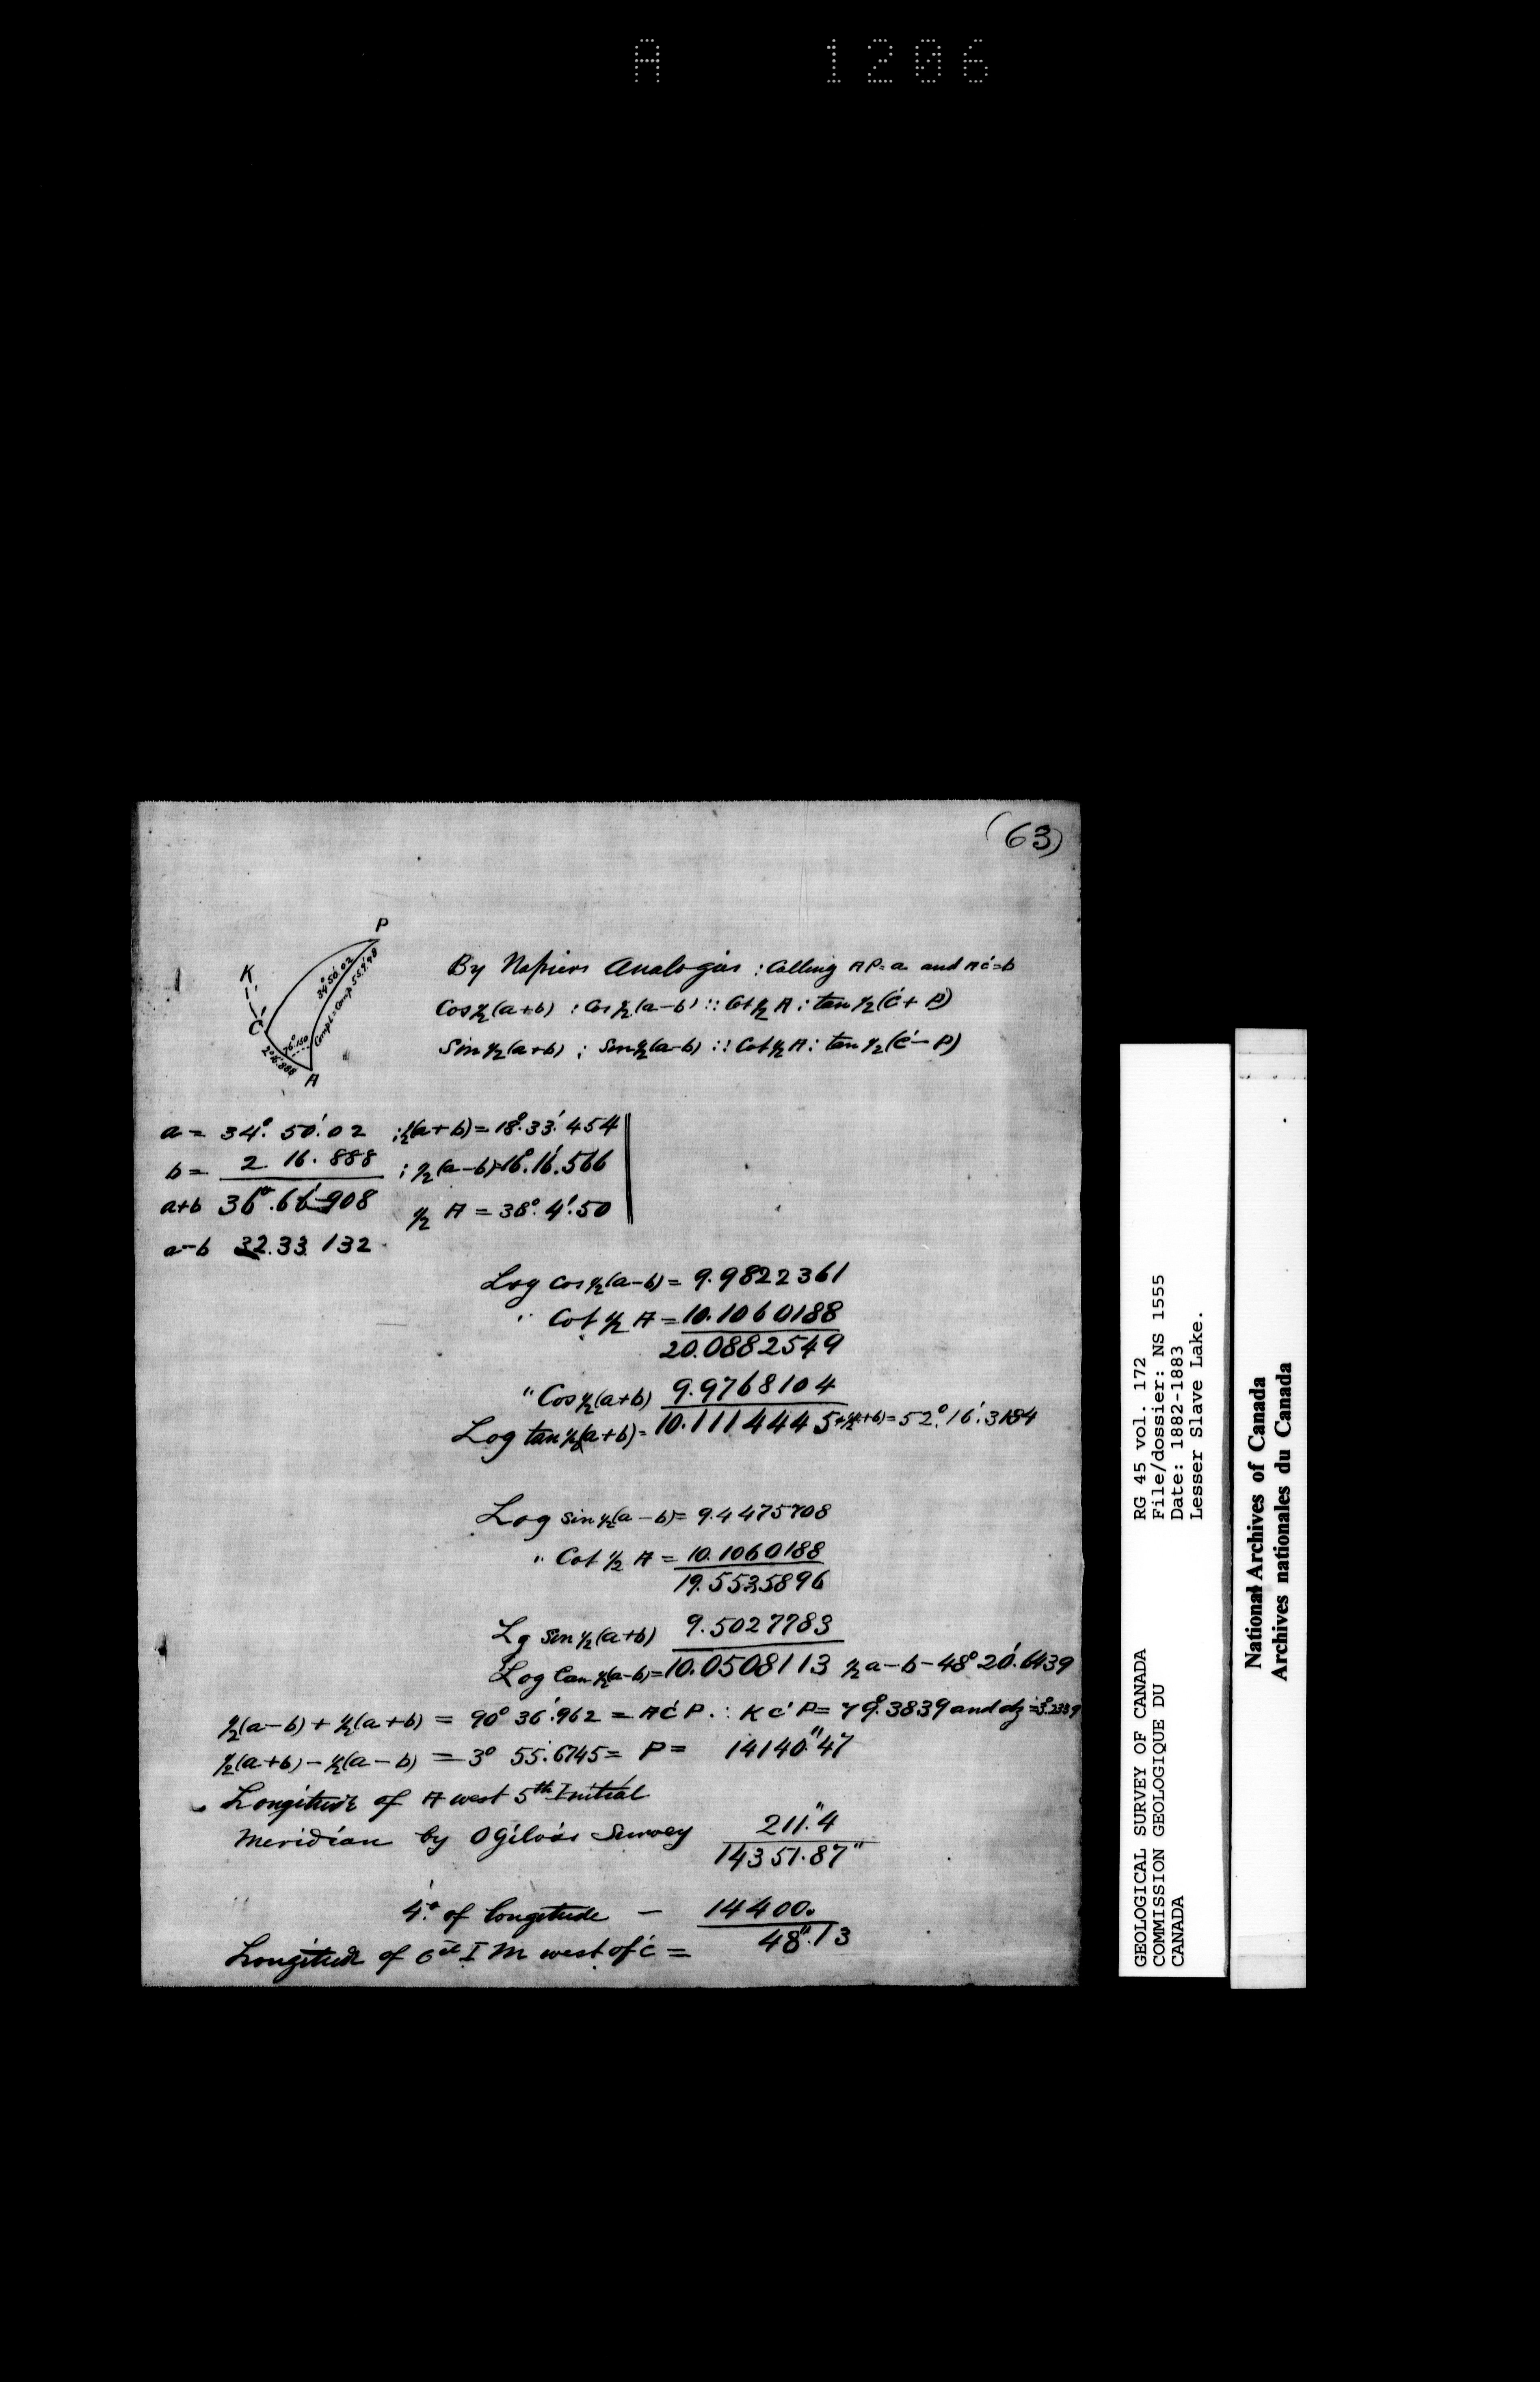 A 1206
(63)
P
K
C'
A
34° 50'.02
Compt = Comp 55.9.98
76°.150
2°16'.888
By Napiers Analogies : Calling AP = a and AC' = b
Cos ½(a+b) : Cos ½(a-b) :: Cot ½ A : tan ½(C'+ P)
Sin ½(a+b) : Sin ½(a-b) :: Cot ½ A : tan ½(C'- P)
a = 34°. 50'. 02 ; ½(a+b) = 18°. 33'. 454
b = 2. 16. 888 ; ½(a-b) = 16°. 16'. 566
a+b 36°. 66'. 908 ½ A = 38°. 4'. 50
a-b 32. 33. 132
Log cos ½(a-b) = 9.9822361
" Cot ½ A = 10.1060188
20.0882549
" Cos ½(a+b) 9.9768104
Log tan ½(a+b) = 10.1114445 ½(a+b) = 52°. 16'. 3184
Log sin ½(a-b) = 9.4475708
" Cot ½ A = 10.1060188
19.5535896
Lg sin ½(a+b) 9.5027783
Log tan ½(a-b) = 10.0508113 ½ a-b - 48° 20'. 6439
½(a-b) + ½(a+b) = 90° 36'.962 = AC'P ∴ KC'P = 79°.3839 and dz = 3°.2339
½(a+b) - ½(a-b) = 3° 55'.6745 = P = 14140."47
Longitude of A west 5th Initial
Meridian by Ogilvies Survey 211."4
14351.87"
4° of longitude - 14400.
Longitude of 6th I M west of C' = 48".13
GEOLOGICAL SURVEY OF CANADA
COMMISSION GEOLOGIQUE DU
CANADA
RG 45 vol. 172
File/dossier: NS 1555
Date: 1882-1883
Lesser Slave Lake.
National Archives of Canada
Archives nationales du Canada